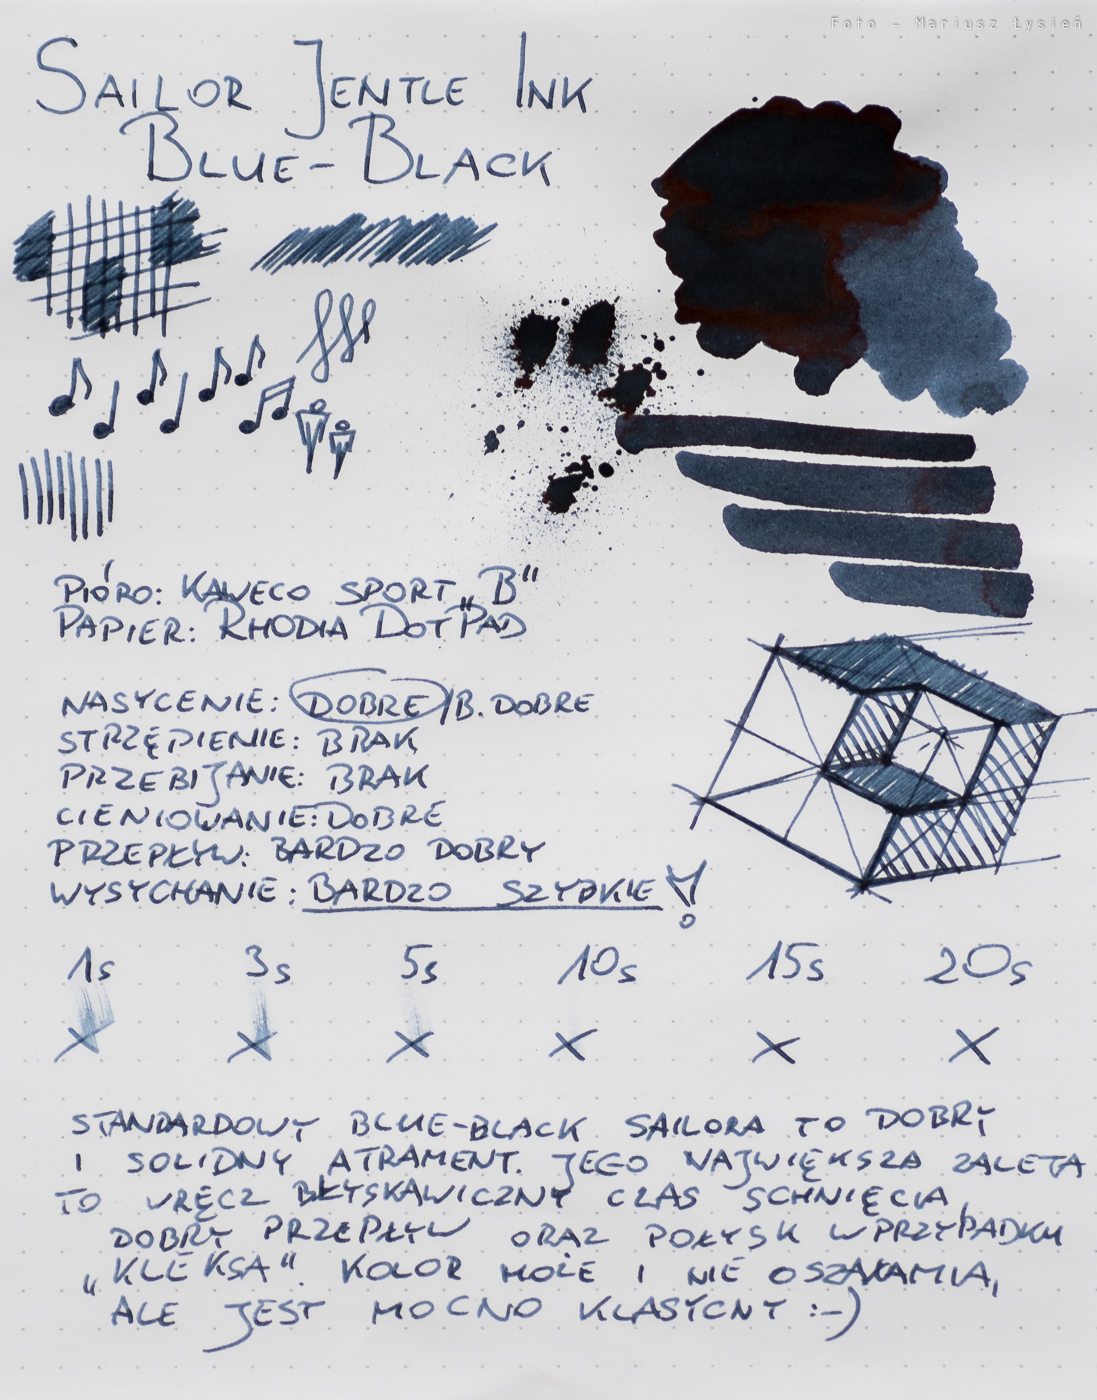 Foto - Mariusz Łysień
SAILOR JENTLE INK
BLUE-BLACK
PIÓRO: KAWECO SPORT „B“
PAPIER: RHODIA DOTPAD
NASYCENIE: DOBRE/B. DOBRE
STRZĘPIENIE: BRAK
PRZEBIJANIE: BRAK
CIENIOWANIE: DOBRE
PRZEPŁYW: BARDZO DOBRY
WYSYCHANIE: BARDZO SZYBKIE!
1s 3s 5s 10s 15s 20s
STANDARDOWY BLUE-BLACK SAILORA TO DOBRY
I SOLIDNY ATRAMENT. JEGO NAJWIĘKSZA ZALETA
TO WRĘCZ BŁYSKAWICZNY CZAS SCHNIĘCIA,
DOBRY PRZEPŁYW ORAZ POŁYSK W PRZYPADKU
„KLEKSA“. KOLOR MOŻE I NIE OSZAŁAMIA,
ALE JEST MOCNO KLASYCNY :-)